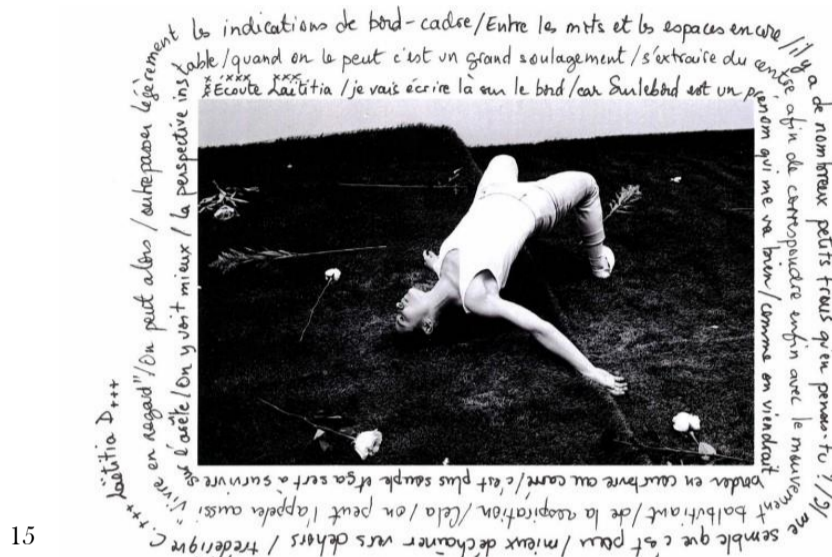 Ecoute Laëtitia / je vais écrire là sur le bord / car Surlebord est un prénom qui me va bien / comme on viendrait
border en au carré / c'est plus souple et ça sert à survivre
sur l'arête / On y voit mieux / la perspective instable / quand on le peut c'est un grand soulagement / s'extraire du centre afin de correspondre enfin avec le mouvement
balbutiant / de la respiration / Cela / on peut l'appeler aussi
"vivre en regard" / On peut alors / outrepasser légèrement les indications de bord-cadre / Entre les mots et les espaces encore / il y a de nombreux petits trous qu'en penses-tu ? / Il me
semble que c'est pour / mieux déchaîner vers dehors / Frédérique C.+++ Laëtitia D+++
15